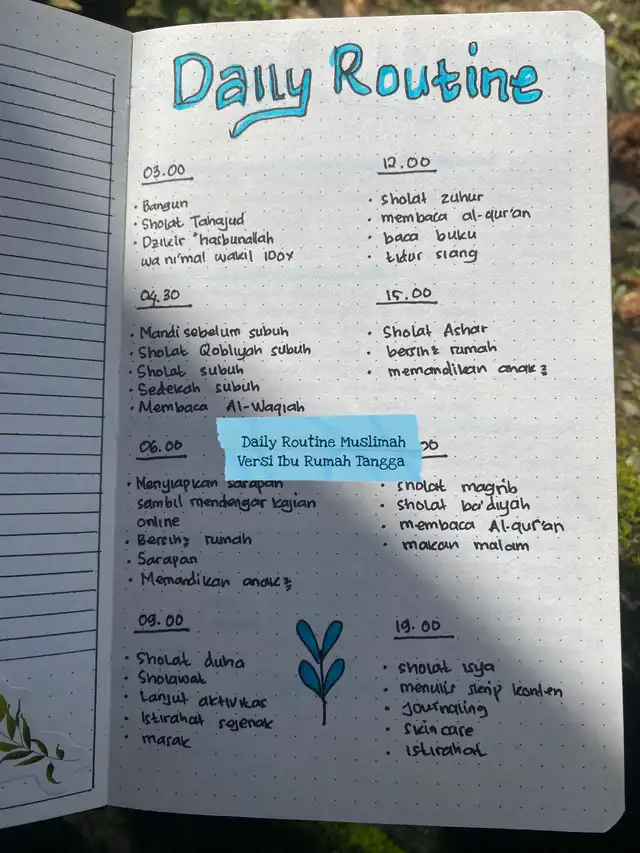 Daily Routine
03.00
• Bangun
• Sholat Tahajud
• Dzikir "hasbunallah
wa ni'mal wakil 100x
04.30
• Mandi sebelum subuh
• Sholat Qobliyah subuh
• Sholat subuh
• Sedekah subuh
• Membaca Al-Waqiah
06.00
• Menyiapkan sarapan
sambil mendengar kajian
online
• Bersih2 rumah
• Sarapan
• Memandikan anak2
09.00
• Sholat duha
• Sholawat
• Lanjut aktivitas
• Istirahat sejenak
• masak
12.00
• sholat zuhur
• membaca al-qur'an
• baca buku
• tidur siang
15.00
• Sholat Ashar
• bersih2 rumah
• memandikan anak2
Daily Routine Muslimah
Versi Ibu Rumah Tangga
00
• sholat magrib
• sholat ba'diyah
• membaca Al-qur'an
• makan malam
19.00
• sholat isya
• menulis skrip konten
• Journaling
• skincare
• istirahat